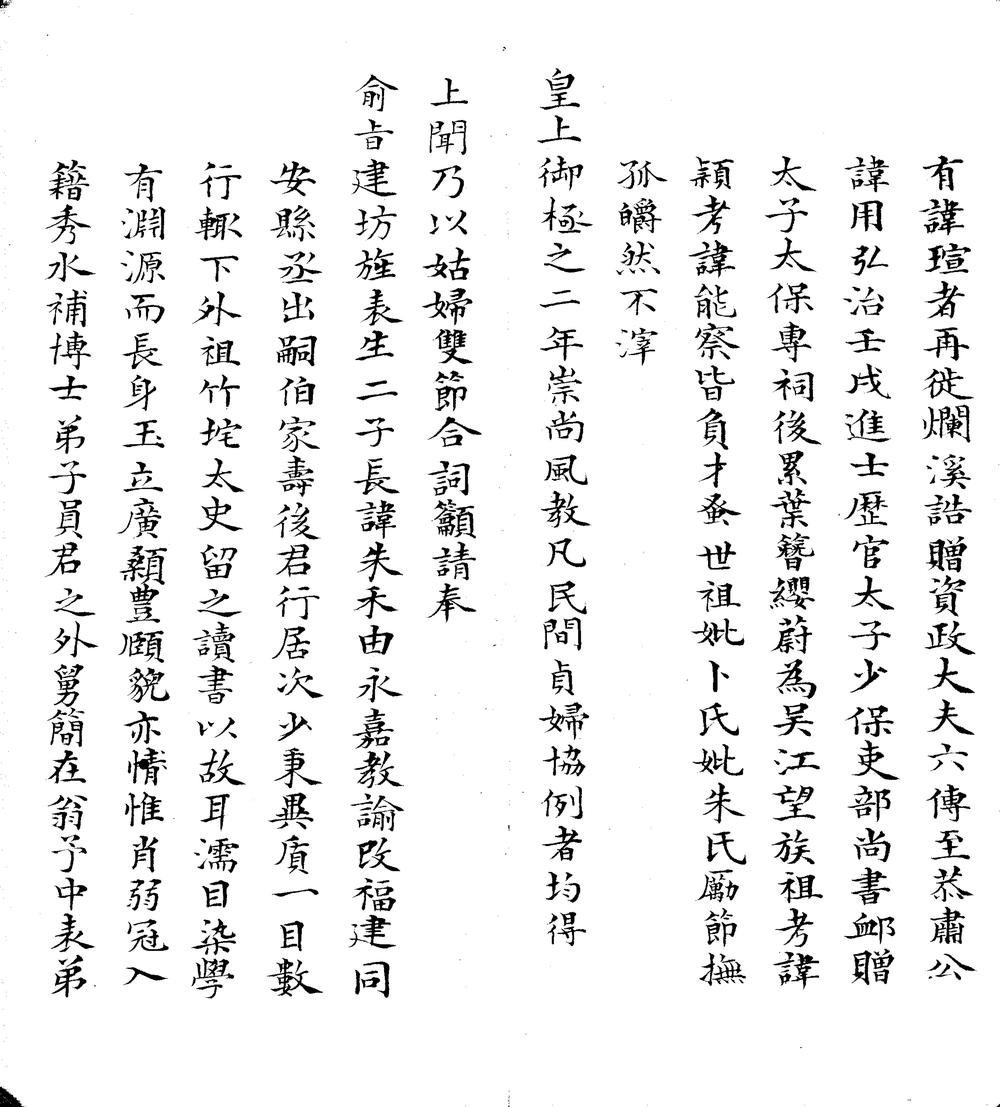 有諱瑄者再徙爛溪誥贈資政大夫六傳至恭肅公
諱用弘治壬戌進士歷官太子少保吏部尚書卹贈
太子太保專祠後累葉簪纓蔚為吴江望族祖考諱
穎考諱能察皆負才蚤世祖妣卜氏妣朱氏勵節撫
孤皭然不滓
皇上御極之二年崇尚風教凡民間貞婦協例者均得
上聞乃以姑婦雙節合詞籲請奉
俞旨建坊旌表生二子長諱朱禾由永嘉教諭改福建同
安縣丞出嗣伯家壽後君行居次少秉異質一目數
行輒下外祖竹垞太史留之讀書以故耳濡目染學
有淵源而長身玉立廣顙豐頤貌亦情惟肖弱冠入
籍秀水補博士弟子員君之外舅簡在翁予中表弟